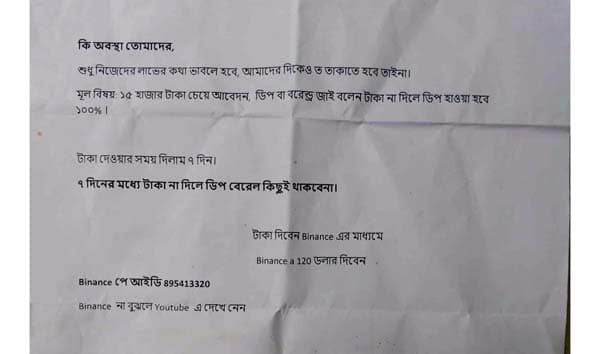 কি অবস্থা তোমাদের,
শুধু নিজেদের লাভের কথা ভাবলে হবে, আমাদের দিকেও ত তাকাতে হবে তাইনা।
মূল বিষয়: ১৫ হাজার টাকা চেয়ে আবেদন, ডিপ বা বরেন্দ্র জাই বলেন টাকা না দিলে ডিপ হাওয়া হবে
১০০%।
টাকা দেওয়ার সময় দিলাম ৭ দিন।
৭ দিনের মধ্যে টাকা না দিলে ডিপ বেরেল কিছুই থাকবেনা।
টাকা দিবেন Binance এর মাধ্যমে
Binance a 120 ডলার দিবেন
Binance পে আইডি 895413320
Binance না বুঝলে Youtube এ দেখে নেন